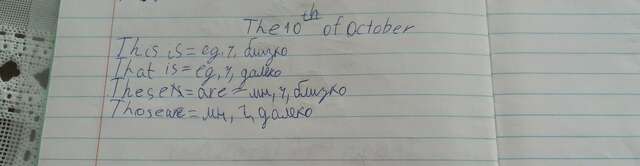 The 10th of October
This is = eg, ч, близко
That is = eg, ч, далеко
These are = мн, ч, близко
Those are = мн, ч, далеко